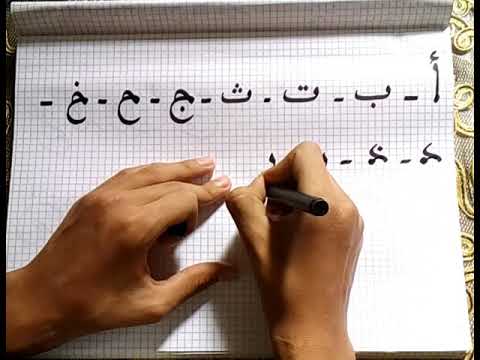 أ - ب - ت - ث - ج - ح - خ -
د - ذ -